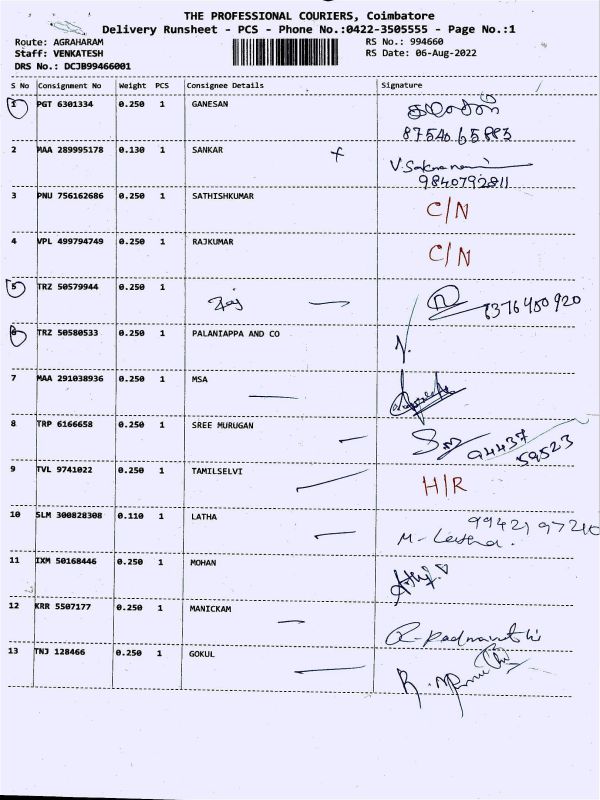 THE PROFESSIONAL COURIERS, Coimbatore
Delivery Runsheet - PCS - Phone No.:0422-3505555 - Page No.:1
Route: AGRAHARAM RS No.: 994660
Staff: VENKATESH RS Date: 06-Aug-2022
DRS No.: DCJB99466001
S No Consignment No Weight PCS Consignee Details Signature
1 PGT 6301334 0.250 1 GANESAN
8754065883
2 MAA 289995178 0.130 1 SANKAR
9840792811
3 PNU 756162686 0.250 1 SATHISHKUMAR C/N
4 VPL 499794749 0.250 1 RAJKUMAR C/N
5 TRZ 50579944 0.250 1
6376480920
6 TRZ 50580533 0.250 1 PALANIAPPA AND CO
7 MAA 291038936 0.250 1 MSA
8 TRP 6166658 0.250 1 SREE MURUGAN
94437
59523
9 TVL 9741022 0.250 1 TAMILSELVI H/R
10 SLM 300828308 0.110 1 LATHA 9942197210
11 IXM 50168446 0.250 1 MOHAN
12 KRR 5507177 0.250 1 MANICKAM
13 TNJ 128466 0.250 1 GOKUL